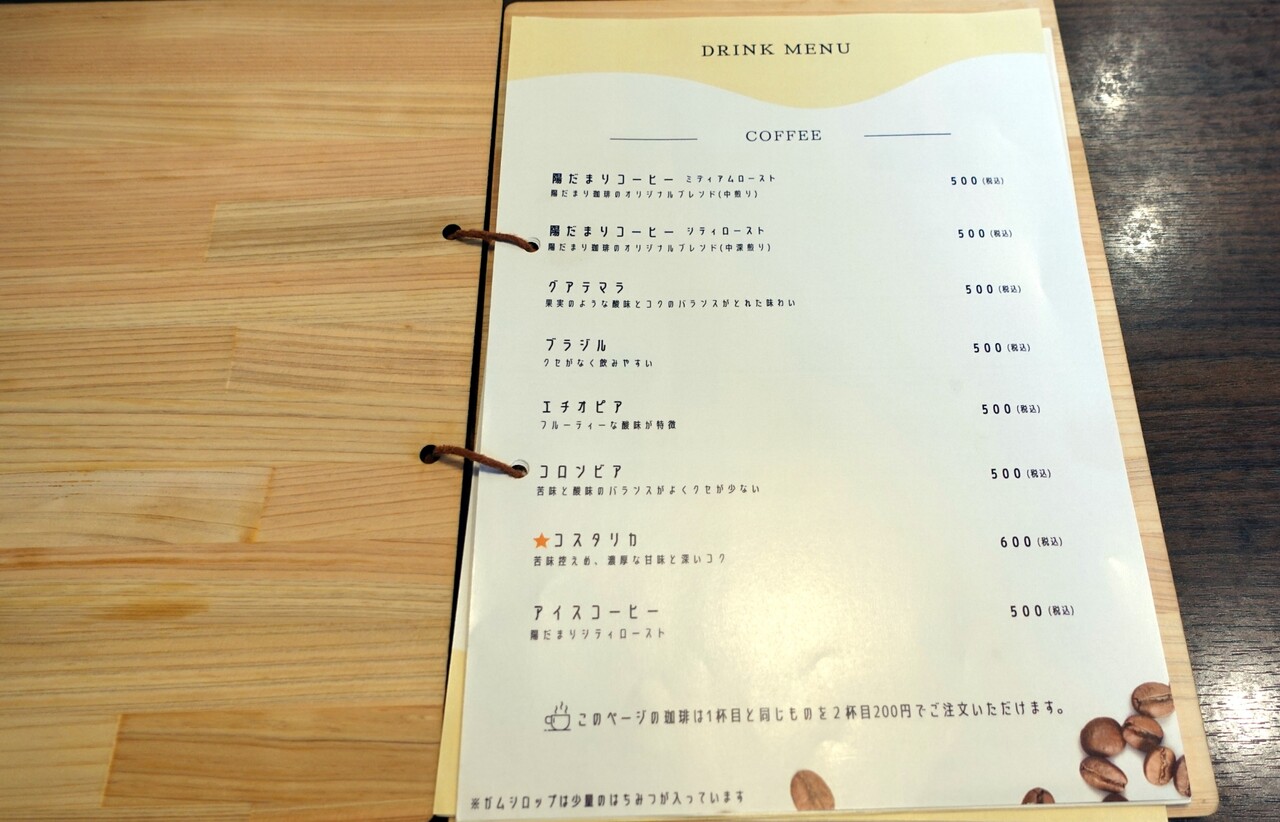 DRINK MENU
COFFEE
陽だまりコーヒー ミディアムロースト 500(税込)
陽だまり珈琲のオリジナルブレンド(中煎り)
陽だまりコーヒー シティロースト 500(税込)
陽だまり珈琲のオリジナルブレンド(中深煎り)
グアテマラ 500(税込)
果実のような酸味とコクのバランスがとれた味わい
ブラジル 500(税込)
クセがなく飲みやすい
エチオピア 500(税込)
フルーティーな酸味が特徴
コロンビア 500(税込)
苦味と酸味のバランスがよくクセが少ない
★コスタリカ 600(税込)
苦味控えめ、濃厚な甘味と深いコク
アイスコーヒー 500(税込)
陽だまりシティロースト
このページの珈琲は1杯目と同じものを2杯目200円でご注文いただけます。
※ガムシロップは少量のはちみつが入っています